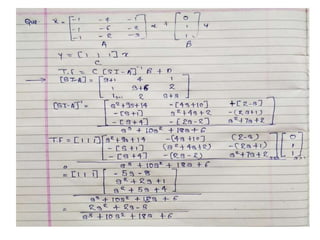 Que x = [-1 -4 -1; -1 -6 -2; -1 -2 -3] x + [0; 1; 1] u
A B
y = [1 1 1] x
C
T.F = C [SI-A]⁻¹ B + D
→ [SI-A] = [s+1 4 1; 1 s+6 2; 1 2 s+3]
[SI-A]⁻¹ = [s²+9s+14 -[4s+10] +[2-s]; -[s+1] s²+4s+2 -(2s+1); -[s+4] -[2s-2] s²+7s+2]
s³ + 10s² + 18s + 6
T.F = [1 1 1] [s²+9s+14 -(4s+10) (2-s); -[s+1] (s²+4s+2) -(2s+1); -[s+4] -(2s-2) s²+7s+2] [0; 1; 1]
s³ + 10s² + 18s + 6
= [1 1 1] [-5s-8; s²+2s+1; s²+5s+4]
s³ + 10s² + 18s + 6
= 2s² + 2s - 3
s³ + 10s² + 18s + 6